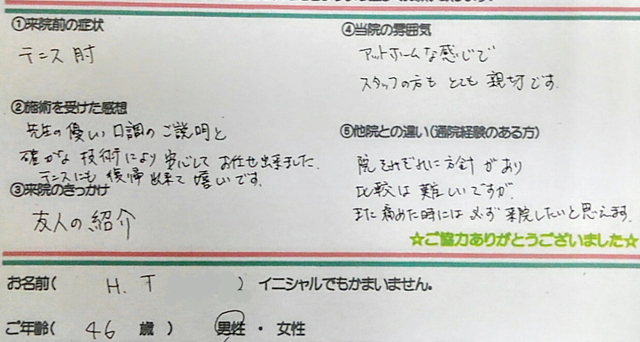 ①来院前の症状
テニス肘
②施術を受けた感想
先生の優しい口調のご説明と
確かな技術により安心してお任せ出来ました。
テニスにも復帰出来て嬉しいです。
③来院のきっかけ
友人の紹介
④当院の雰囲気
アットホームな感じで
スタッフの方もとても親切です。
⑤他院との違い(通院経験のある方)
院それぞれに方針があり
比較は難しいですが、
また痛めた時には必ず来院したいと思えます。
☆ご協力ありがとうございました☆
お名前( H. T ) イニシャルでもかまいません。
ご年齢( 46 歳 ) 男性 ・ 女性